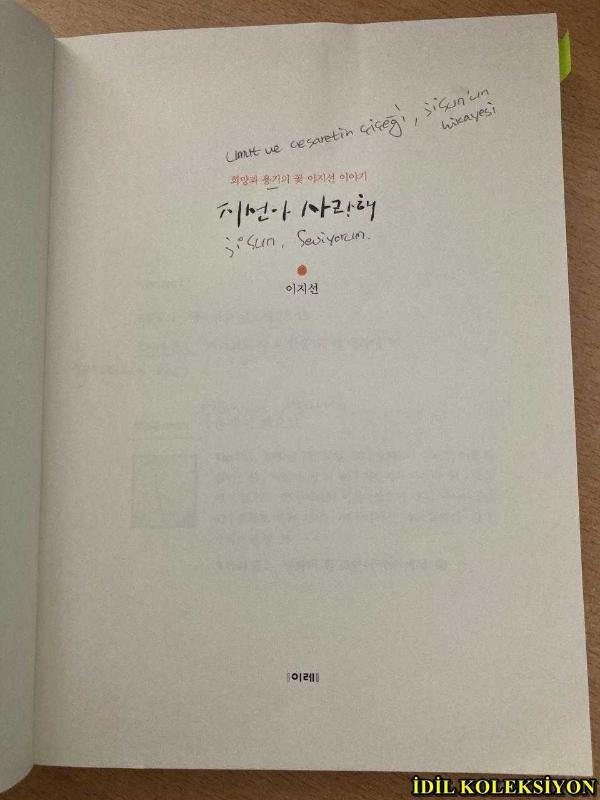 umut ve cesaretin çiçeği, jisun'un
hikayesi
희망과 용기의 꽃 이지선 이야기
지선아 사랑해
jisun, Seviyorum.
이지선
이레
İDİL KOLEKSİYON